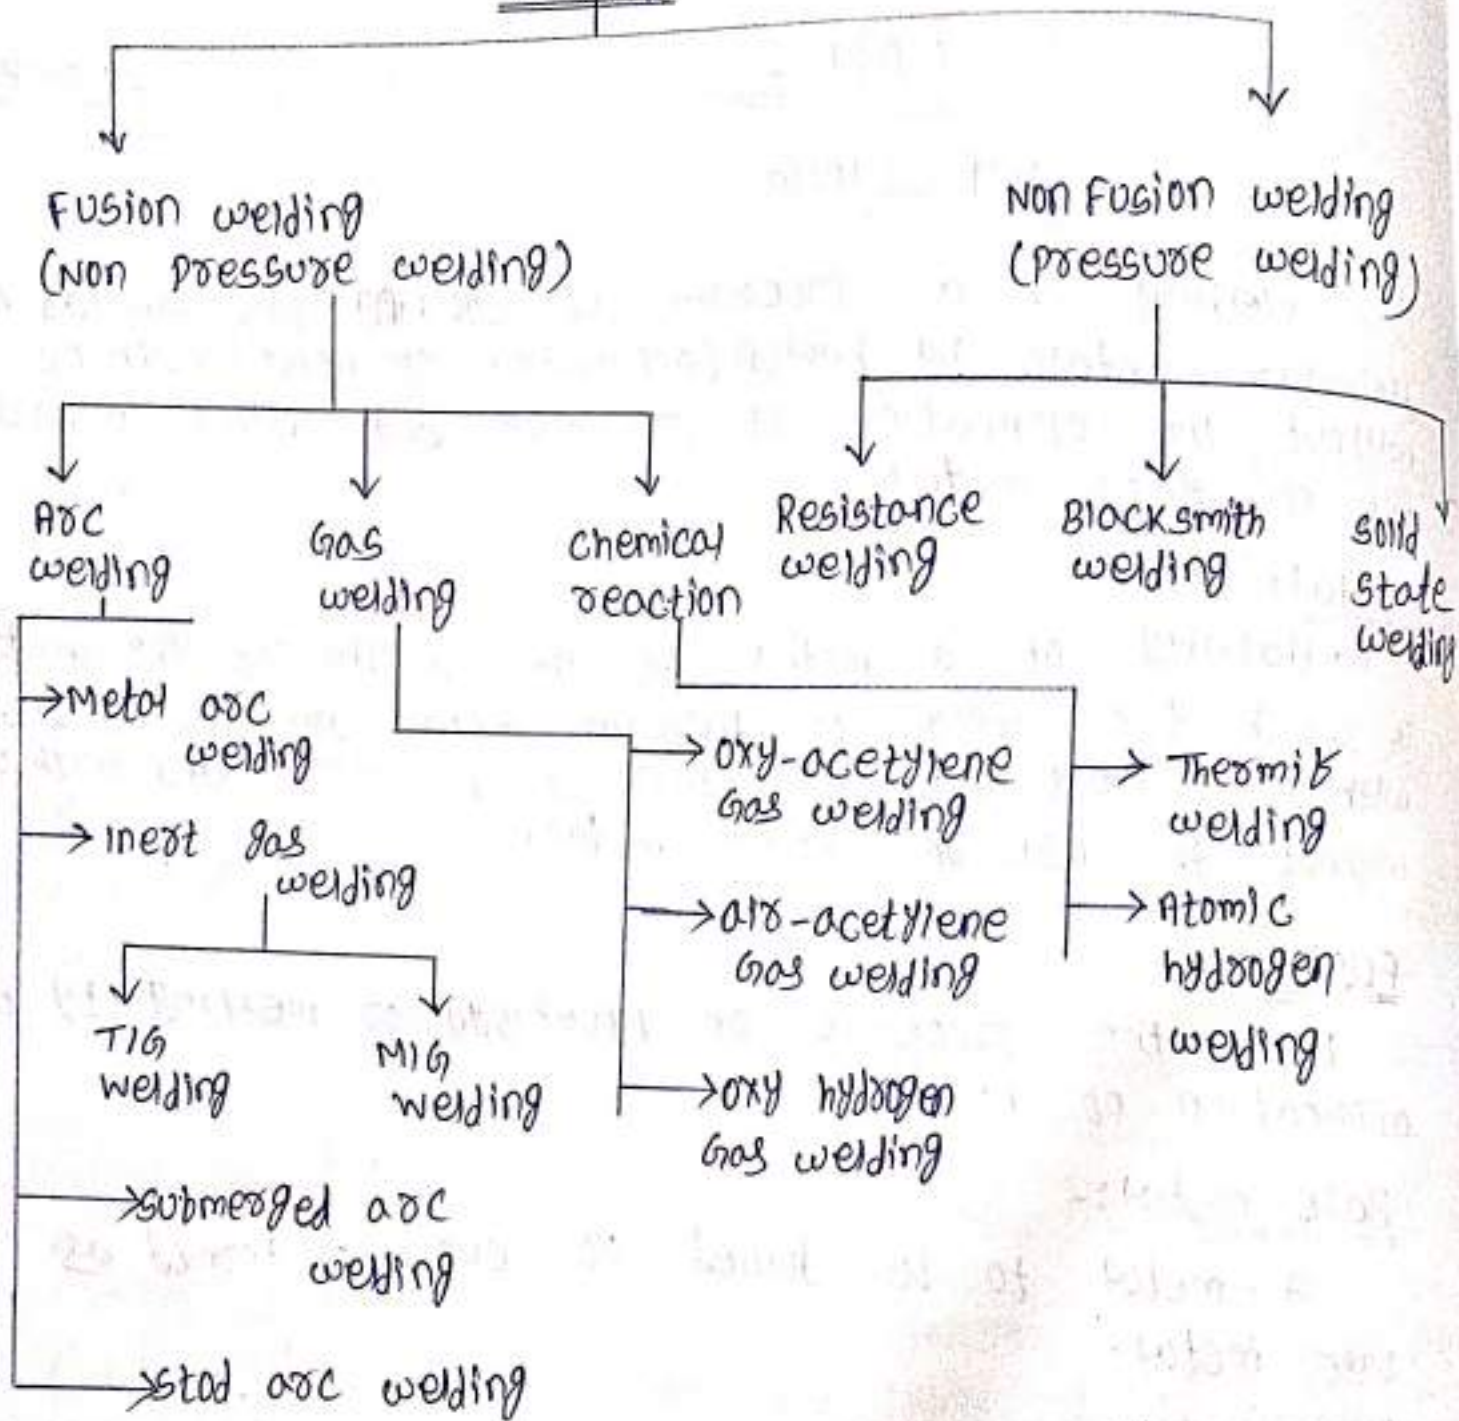 Fusion welding
(Non pressure welding)
Non Fusion welding
(pressure welding)
Arc
welding
Gas
welding
chemical
reaction
Resistance
welding
Blacksmith
welding
solid
state
welding
Metal arc
welding
inert gas
welding
TIG
welding
MIG
welding
submerged arc
welding
stod arc welding
oxy-acetylene
Gas welding
air-acetylene
Gas welding
oxy hydrogen
Gas welding
Thermit
welding
Atomic
hydrogen
welding